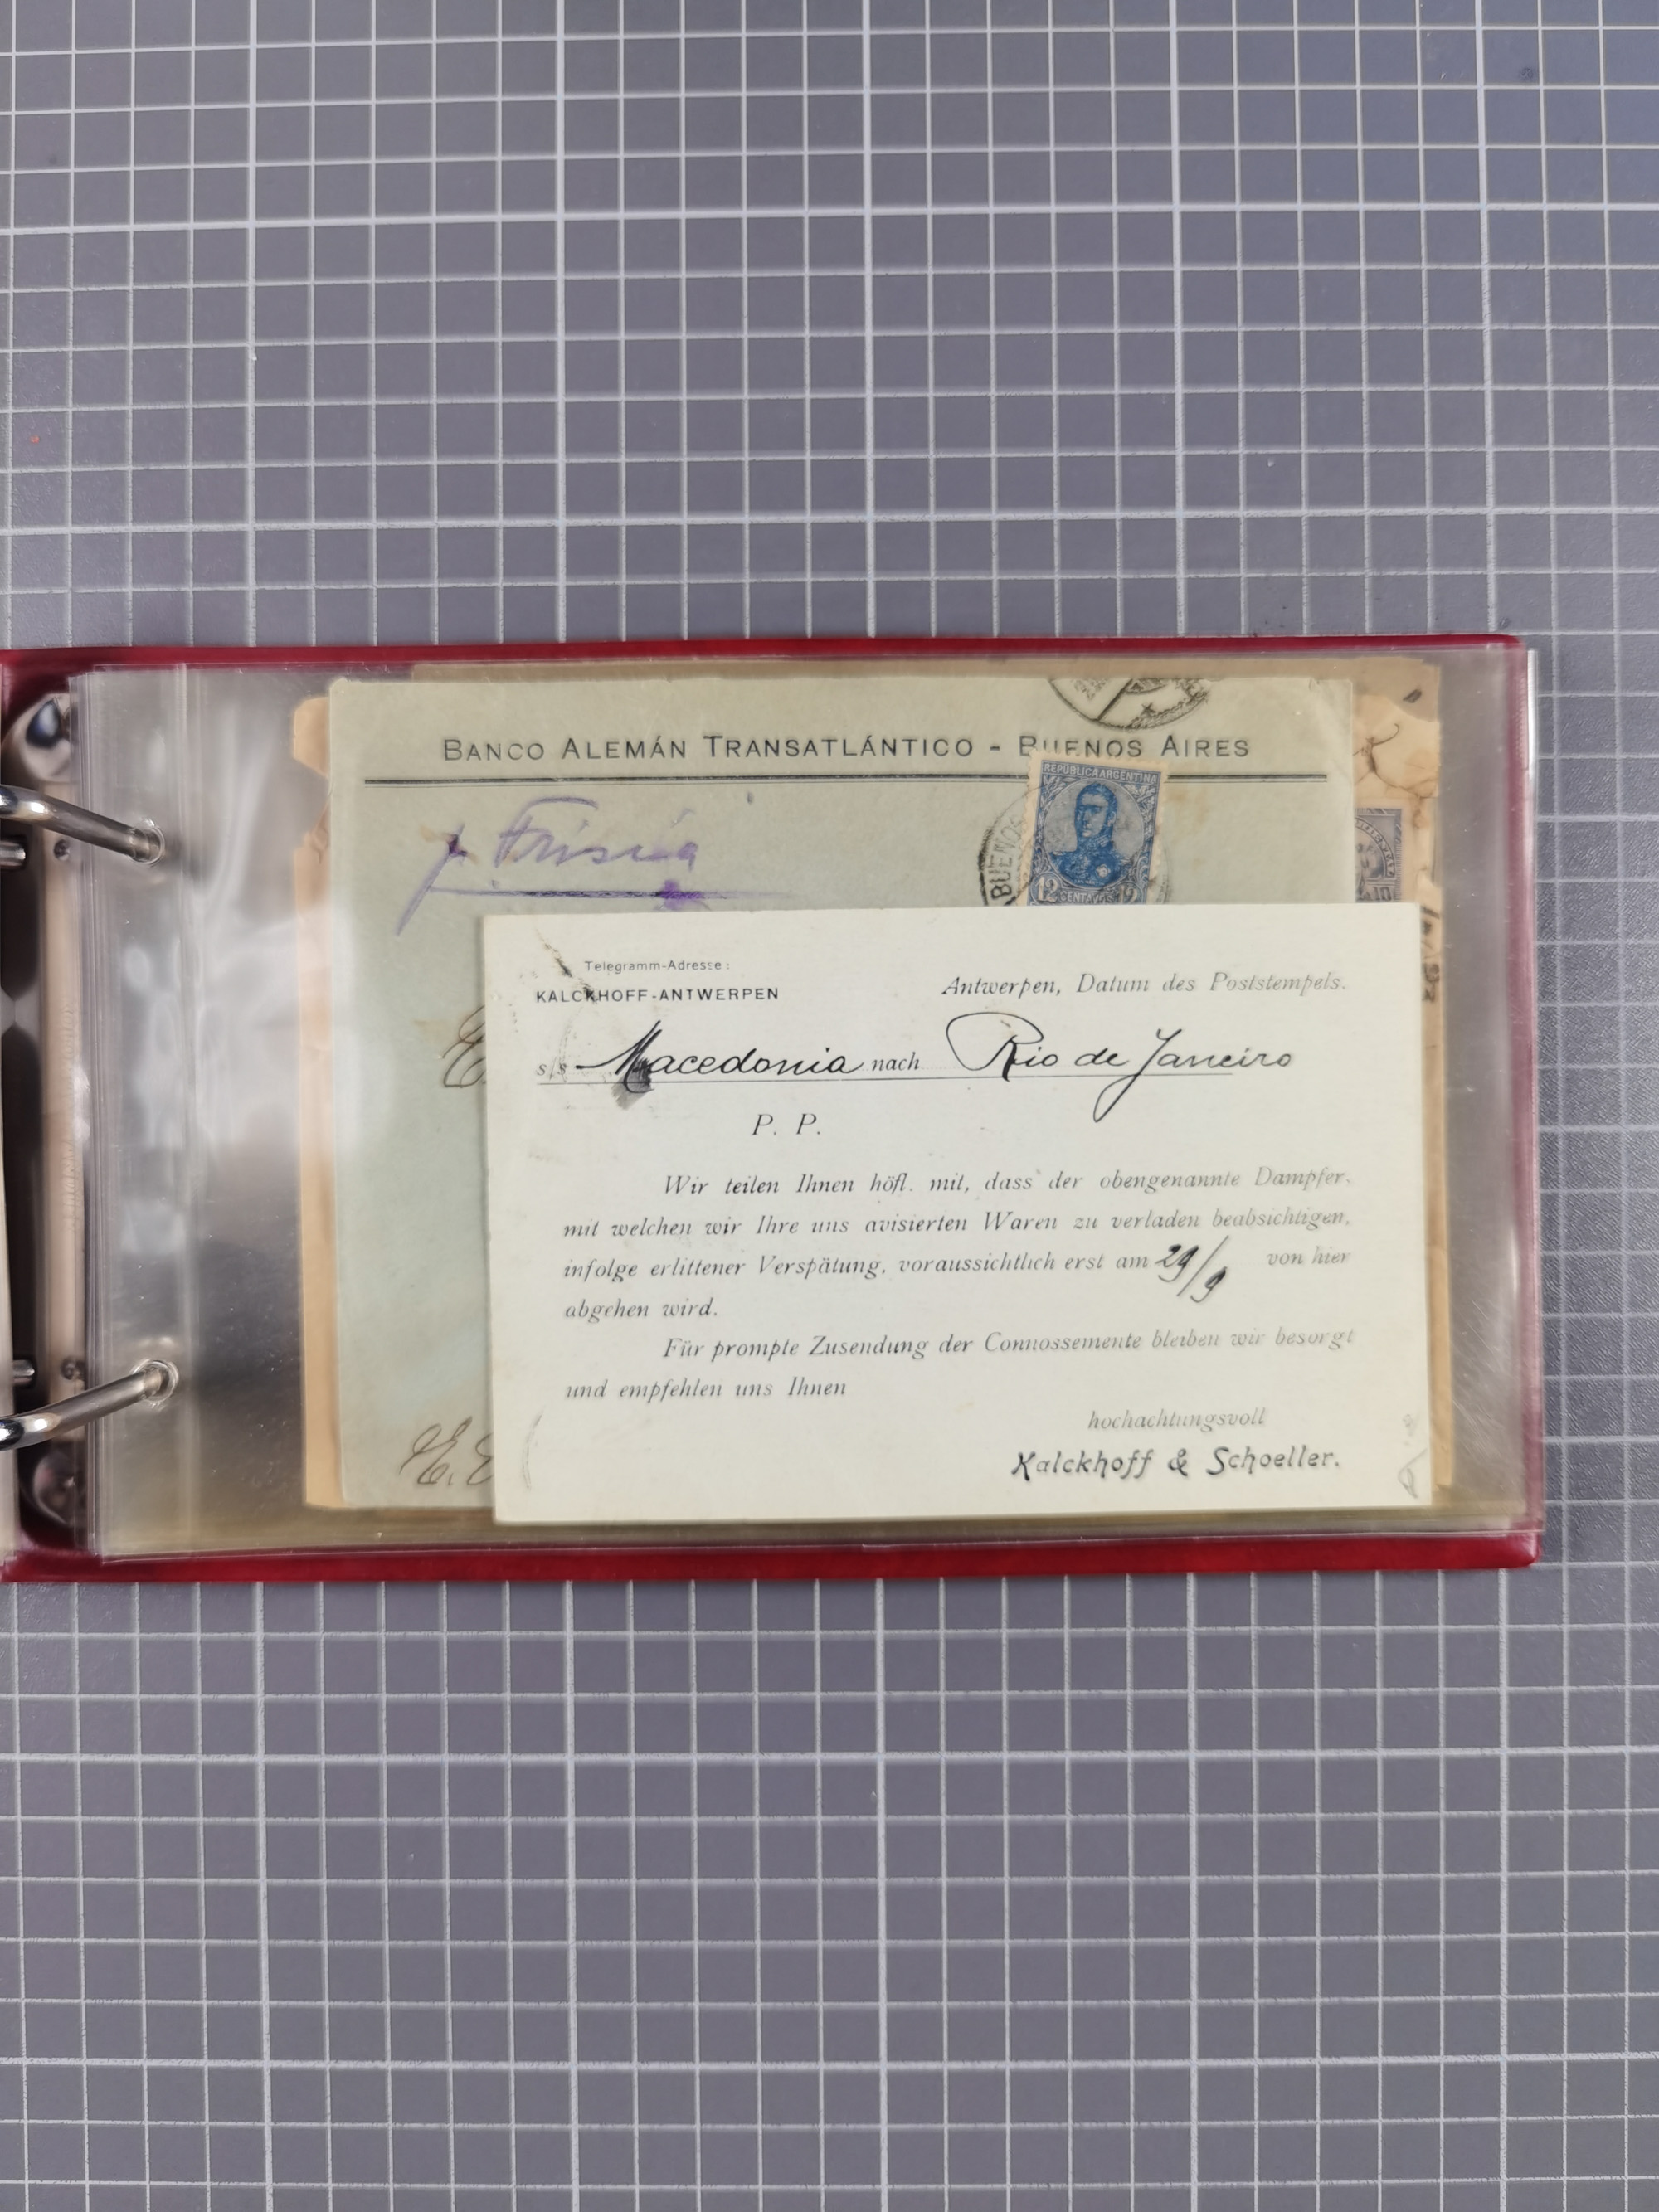 BANCO ALEMÁN TRANSATLÁNTICO - BUENOS AIRES
p. Frisia
REPÚBLICA ARGENTINA
12 CENTAVOS 12
BUENOS
10
Telegramm-Adresse:
KALCKHOFF-ANTWERPEN
Antwerpen, Datum des Poststempels.
s/s Macedonia nach Rio de Janeiro
P. P.
Wir teilen Ihnen höfl. mit, dass der obengenannte Dampfer,
mit welchen wir Ihre uns avisierten Waren zu verladen beabsichtigen,
infolge erlittener Verspätung, voraussichtlich erst am 29/9 von hier
abgehen wird.
Für prompte Zusendung der Connossemente bleiben wir besorgt
und empfehlen uns Ihnen
hochachtungsvoll
Kalckhoff & Schoeller.